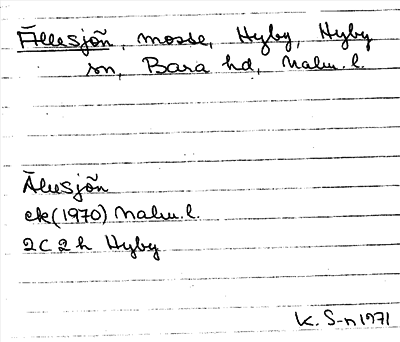 Ällesjön, mosse, Hyby, Hyby
sn, Bara hd, Malm. l.
Älusjön
ek (1970) Malm. l.
2C 2h Hyby
K. S-n 1971